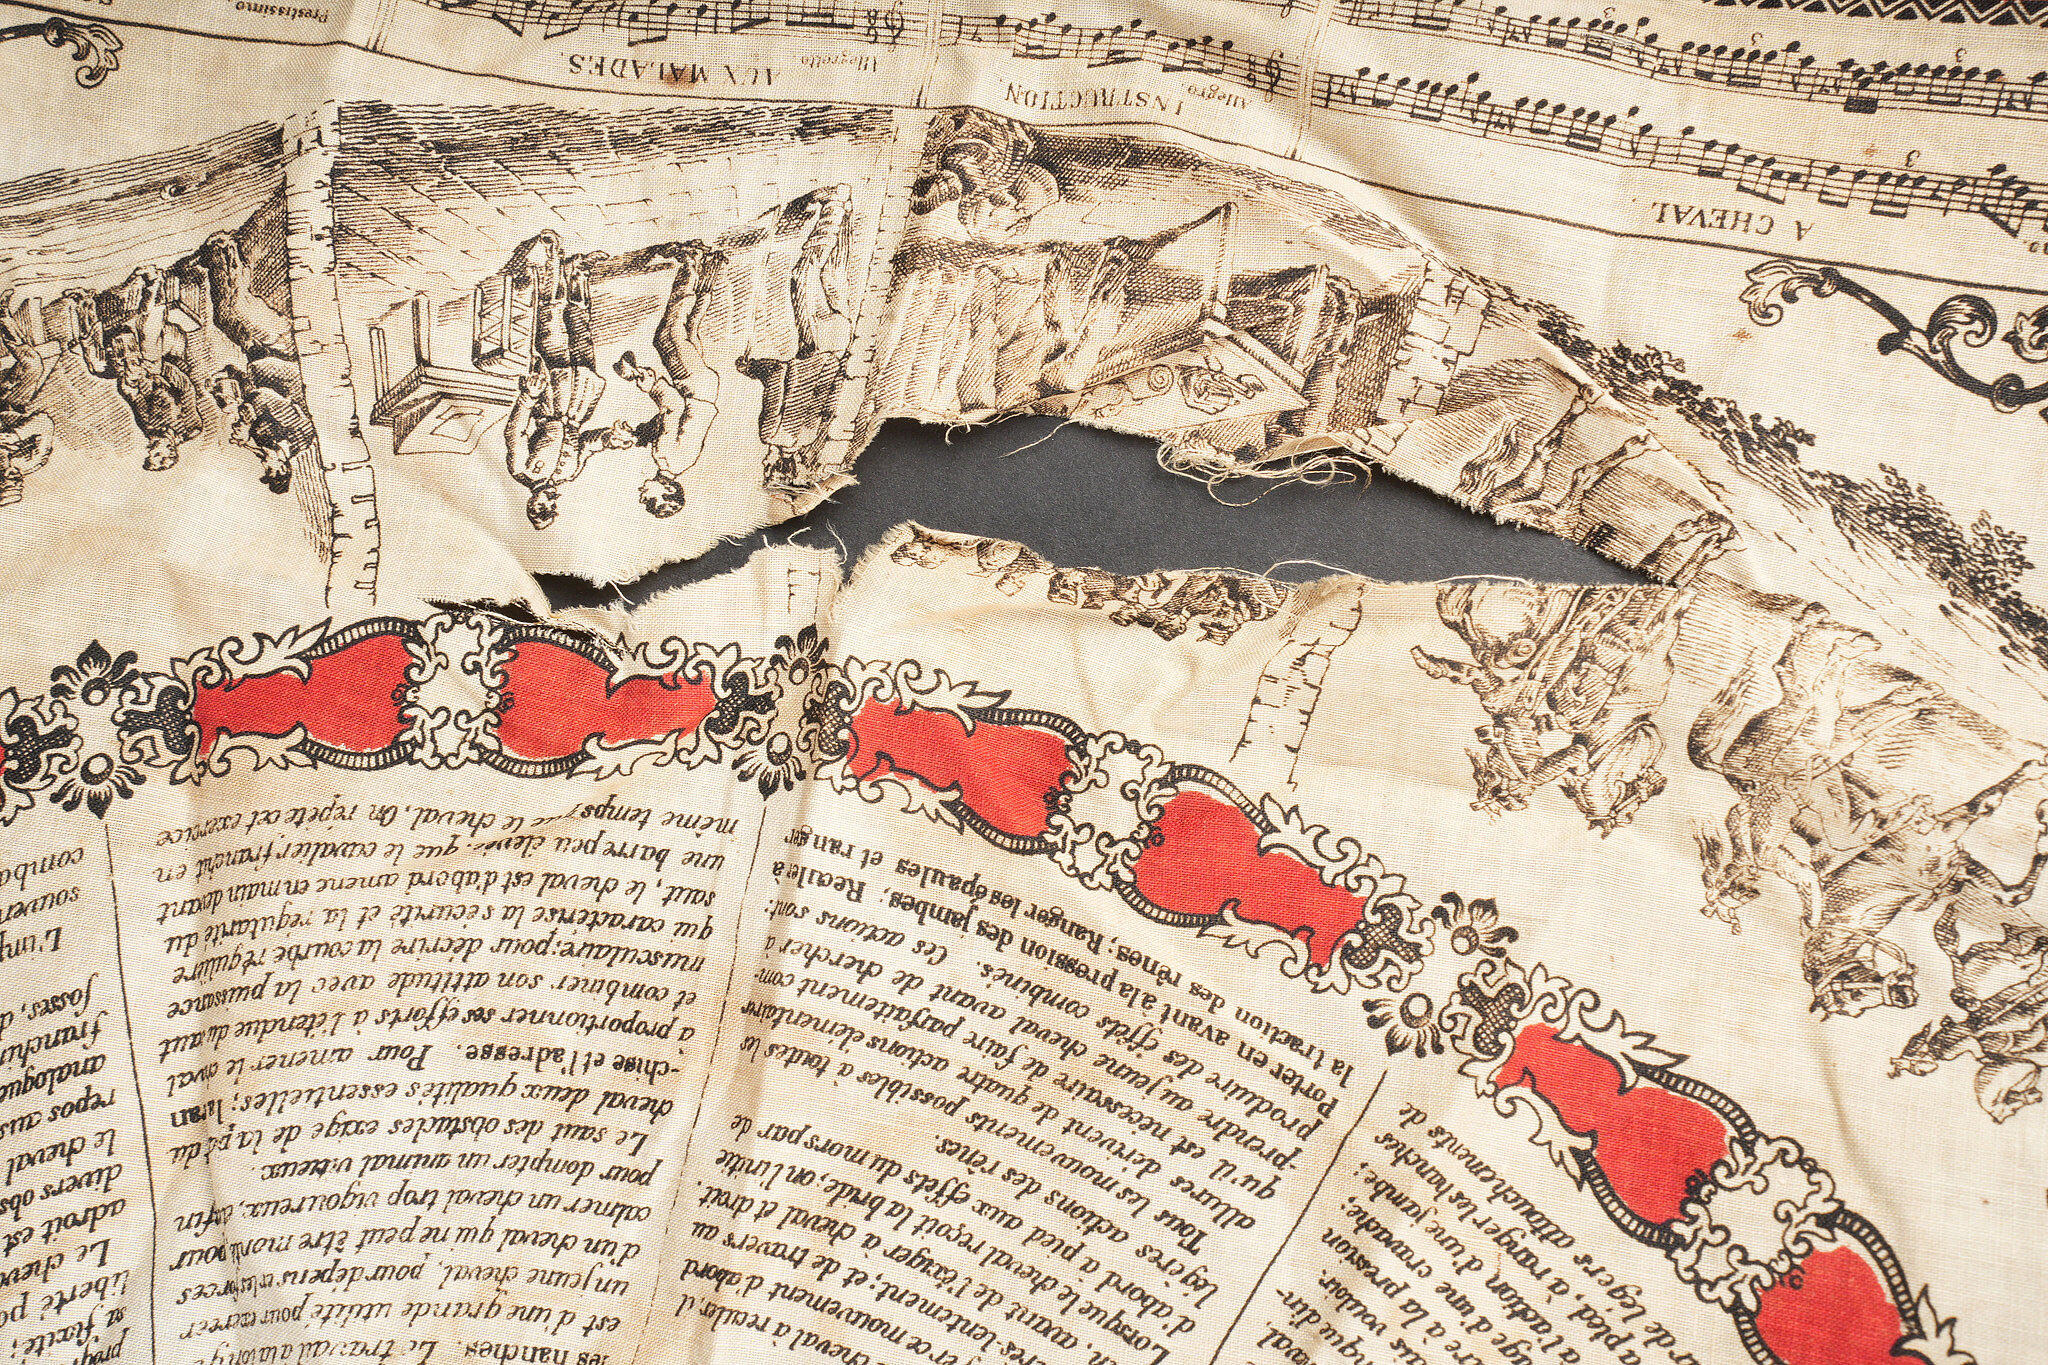 que d'in-
vouloir.
à la pression
d'une cravache;
à l'action d'une jambe;
à pied, à ranger les hanches
de légers attouchements de
cheval à reculer, d
ce mouvement d'abord
lentement, et de travers au
avant de l'exiger à cheval et droit.
Lorsque le cheval reçoit la bride, on l'initie
d'abord à pied aux effets du mors par de
légères actions des rênes.
Tous les mouvements possibles à toutes les
allures dérivent de quatre actions élémentaires
qu'il est nécessaire de faire parfaitement com-
-prendre au jeune cheval avant de chercher à
produire des effets combinés. Ces actions sont:
Porter en avant à la pression des jambes; Recule à
la traction des rênes; Ranger les épaules et ranger
les hanches. Le travail a la longe
est d'une grande utilité pour exercer
un jeune cheval, pour dépenser les forces
d'un cheval qui ne peut être monté pour
calmer un cheval trop vigoureux, enfin
pour dompter un animal vicieux.
Le saut des obstacles exige de la part du
cheval deux qualités essentielles; la fran
-chise et l'adresse. Pour amener le cheval
à proportionner ses efforts à l'étendue du saut
et combiner son attitude avec la puissance
musculaire; pour décrire la courbe régulière
qui caractérise la sécurité et la régularité du
saut, le cheval est d'abord amené en main devant
une barre peu élevée, que le cavalier franchit en
même temps que le cheval. On répète cet exercice
prog
sa fixité;
liberté po
Le cheva
adroit est
divers obs
le cheval
repos aus
analogue
franchir
fosses, d
L'imp
souven
comba
A CHEVAL
Allegro.
INSTRUCTION.
Allegretto
AUX MALADES.
Prestissimo